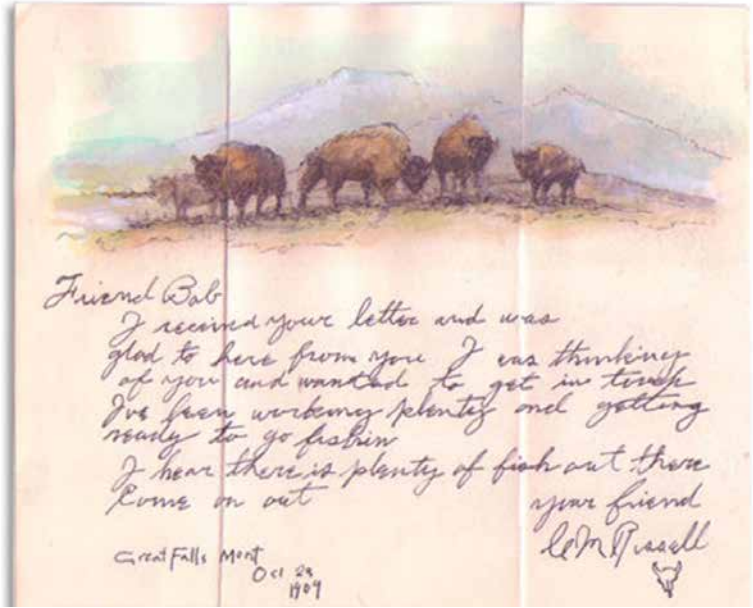 Friend Bob
I received your letter and was
glad to here from you I was thinking
of you and wanted to get in touch
I've been working plenty and getting
ready to go fishin
I hear there is plenty of fish out there
Come on out your friend
CM Russell
Great Falls Mont
Oct 23
1909